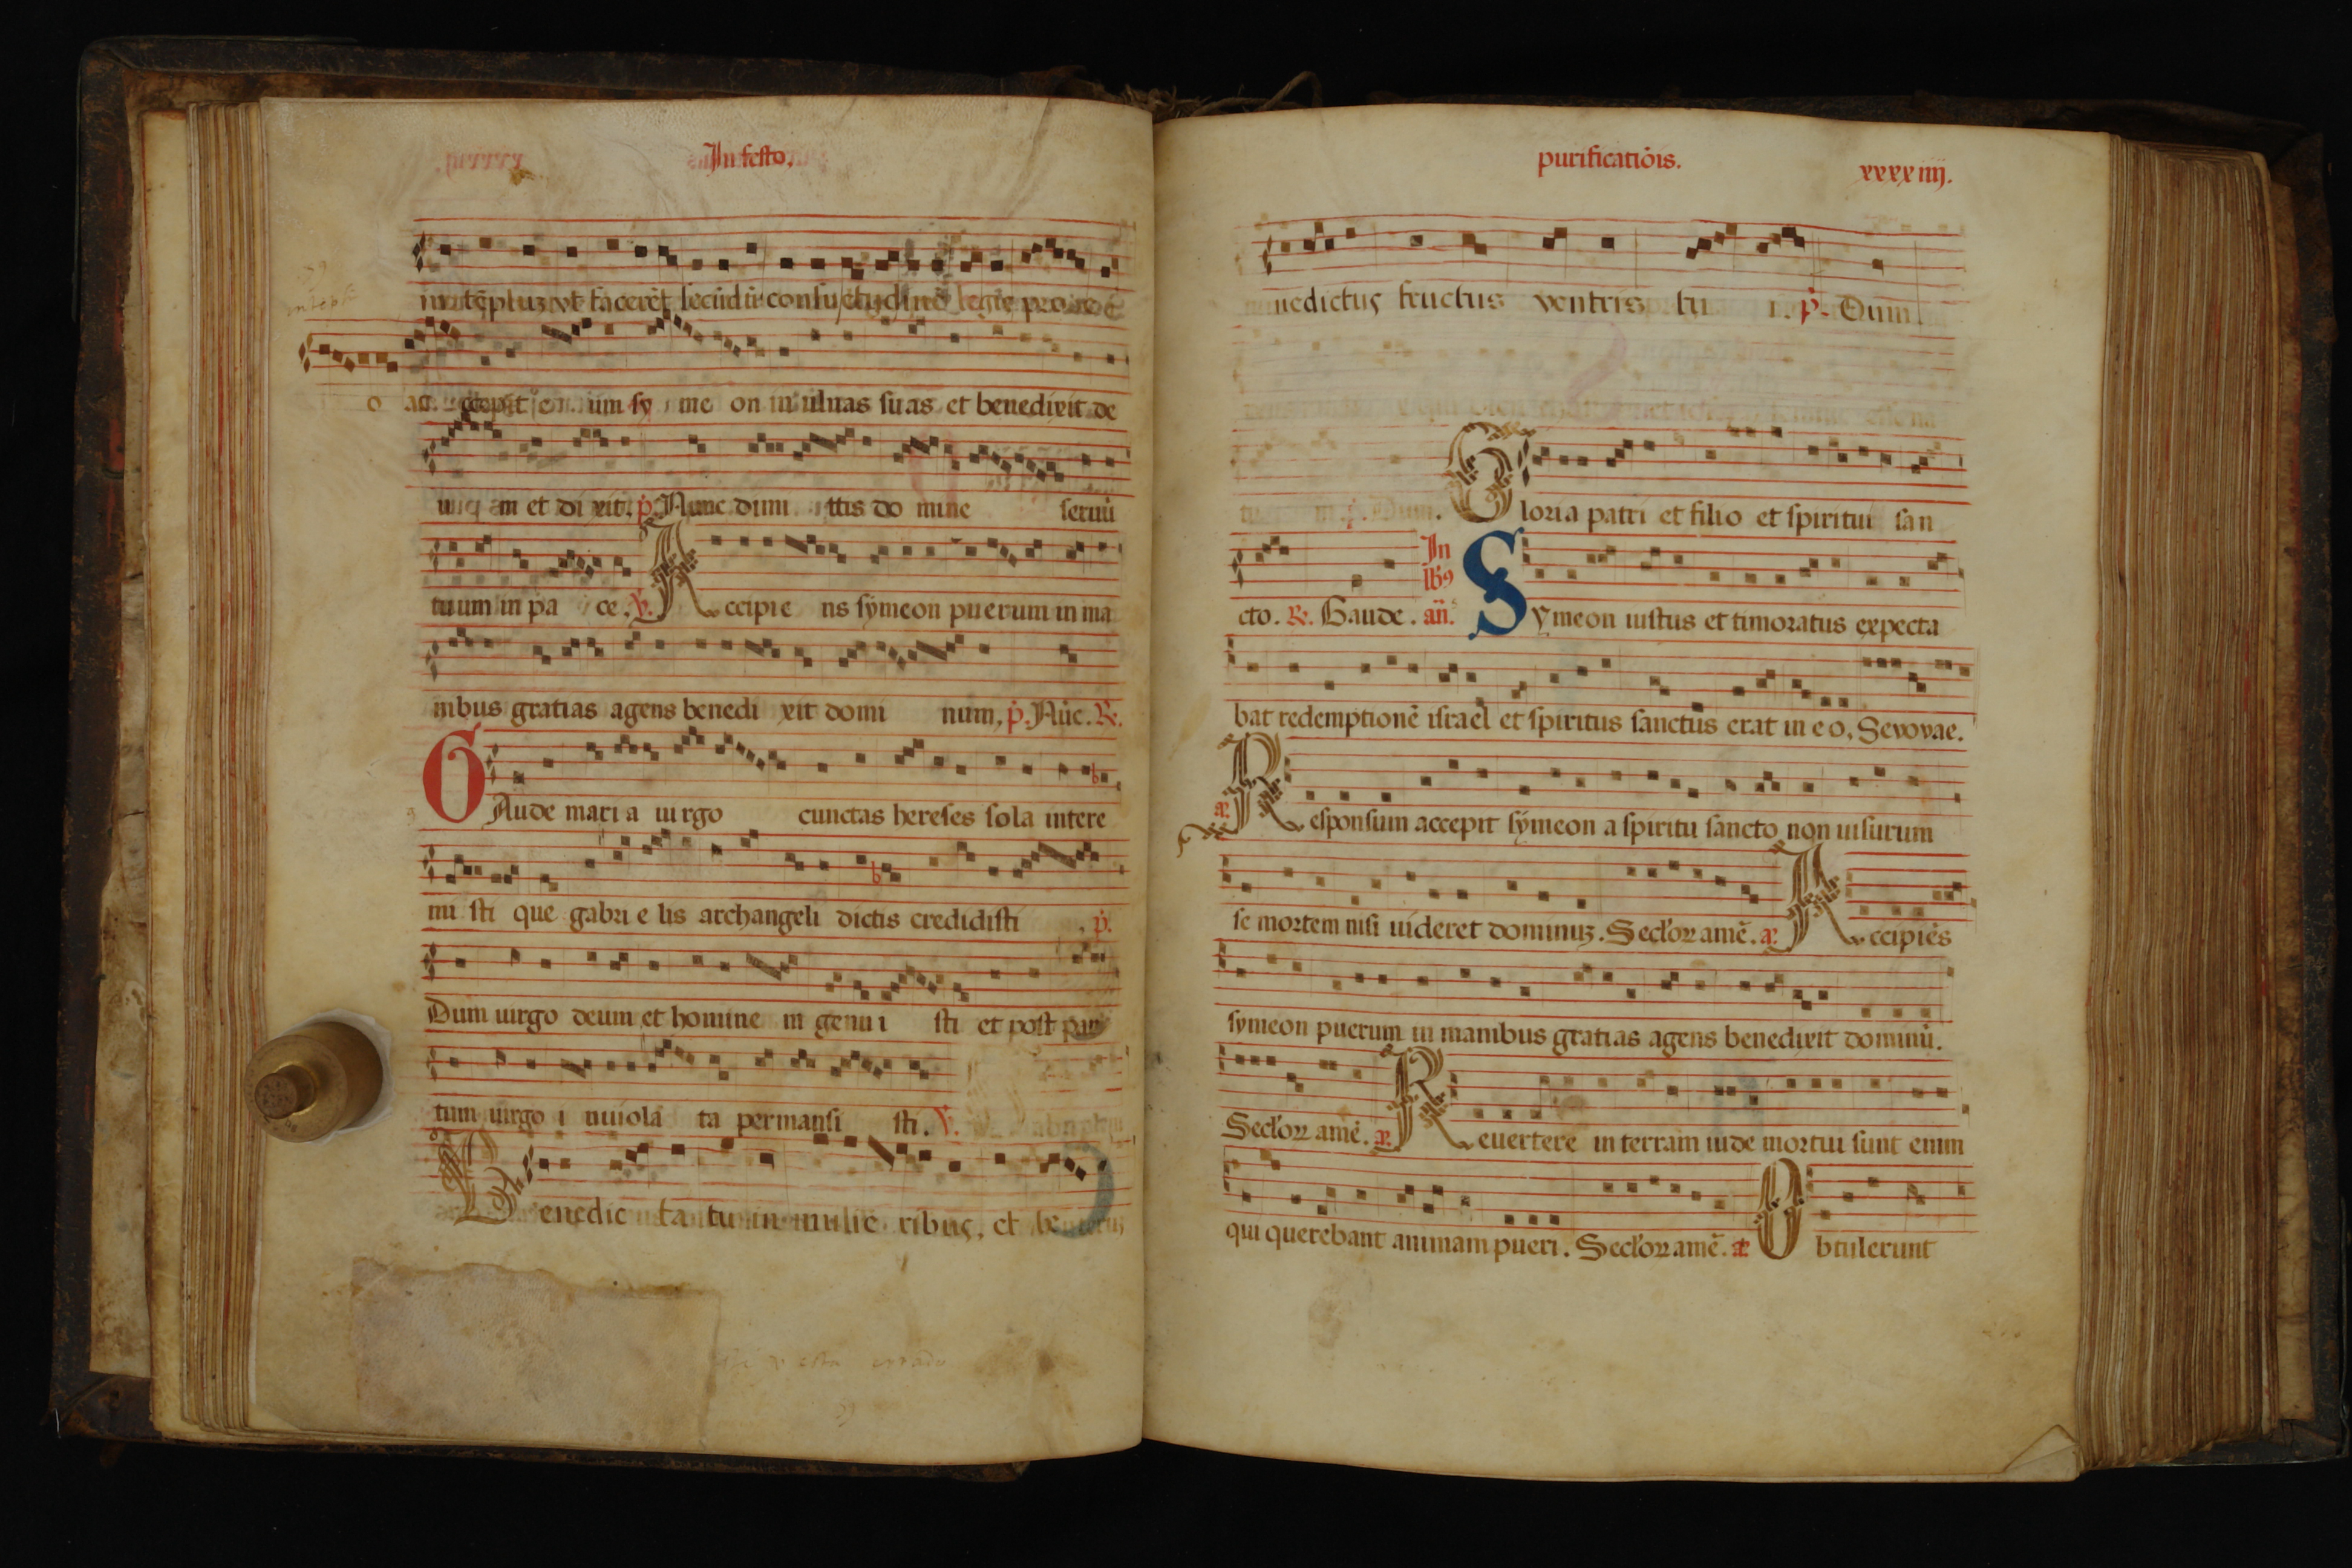 In festo.
ut faceret secūdū consuetudinē legis pro e
o ac cepit e um sy me on in ulnas suas et benedixit de
um et di xit. p̄. Nunc dimi ttis do mine seruū
tuum in pa ce. ℣. Accipie ns symeon puerum in ma
nibus gratias agens benedi xit domi num, p̄. Nūc. ℟.
GAude mari a uirgo cunctas hereses sola intere
mi sti que gabri e lis archangeli dictis credidisti . p̄.
Dum uirgo deum et homine m genu i sti et post par
tum uirgo i nuiola ta permansi sti. ℣.
Benedic ta tu in mulie ribus, et be
purificatiōis. xxxxiiij.
nedictus fructus ventris tu i. p̄. Dum
m. p̄. Dum. Gloria patri et filio et spiritui san
cto. ℟. Gaude. In lb9 añ. Symeon iustus et timoratus expecta
bat redemptionē israel et spiritus sanctus erat in e o, Sevovae.
a. Responsum accepit symeon a spiritu sancto non uisurum
se mortem nisi uideret dominuz. Seclo℟ amē. a. Accipiēs
symeon puerum in manibus gratias agens benedixit dominū.
Seclo℟ amē. a. Reuertere in terram iude mortui sunt enim
qui querebant animam pueri. Seclo℟ amē. a. Obtulerunt